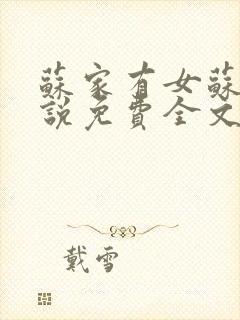 蘇家有女蘇
說免費全文
戴雪